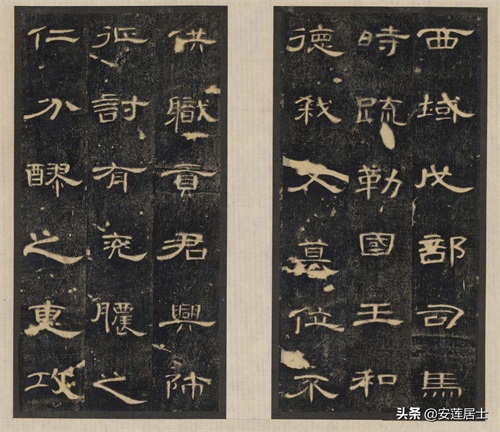 西域戊部司馬
時疏勒國王和
德弒父篡位不
供職貢君興師
征討有兗膿之
仁分醪之惠攻
头条 @安莲居士